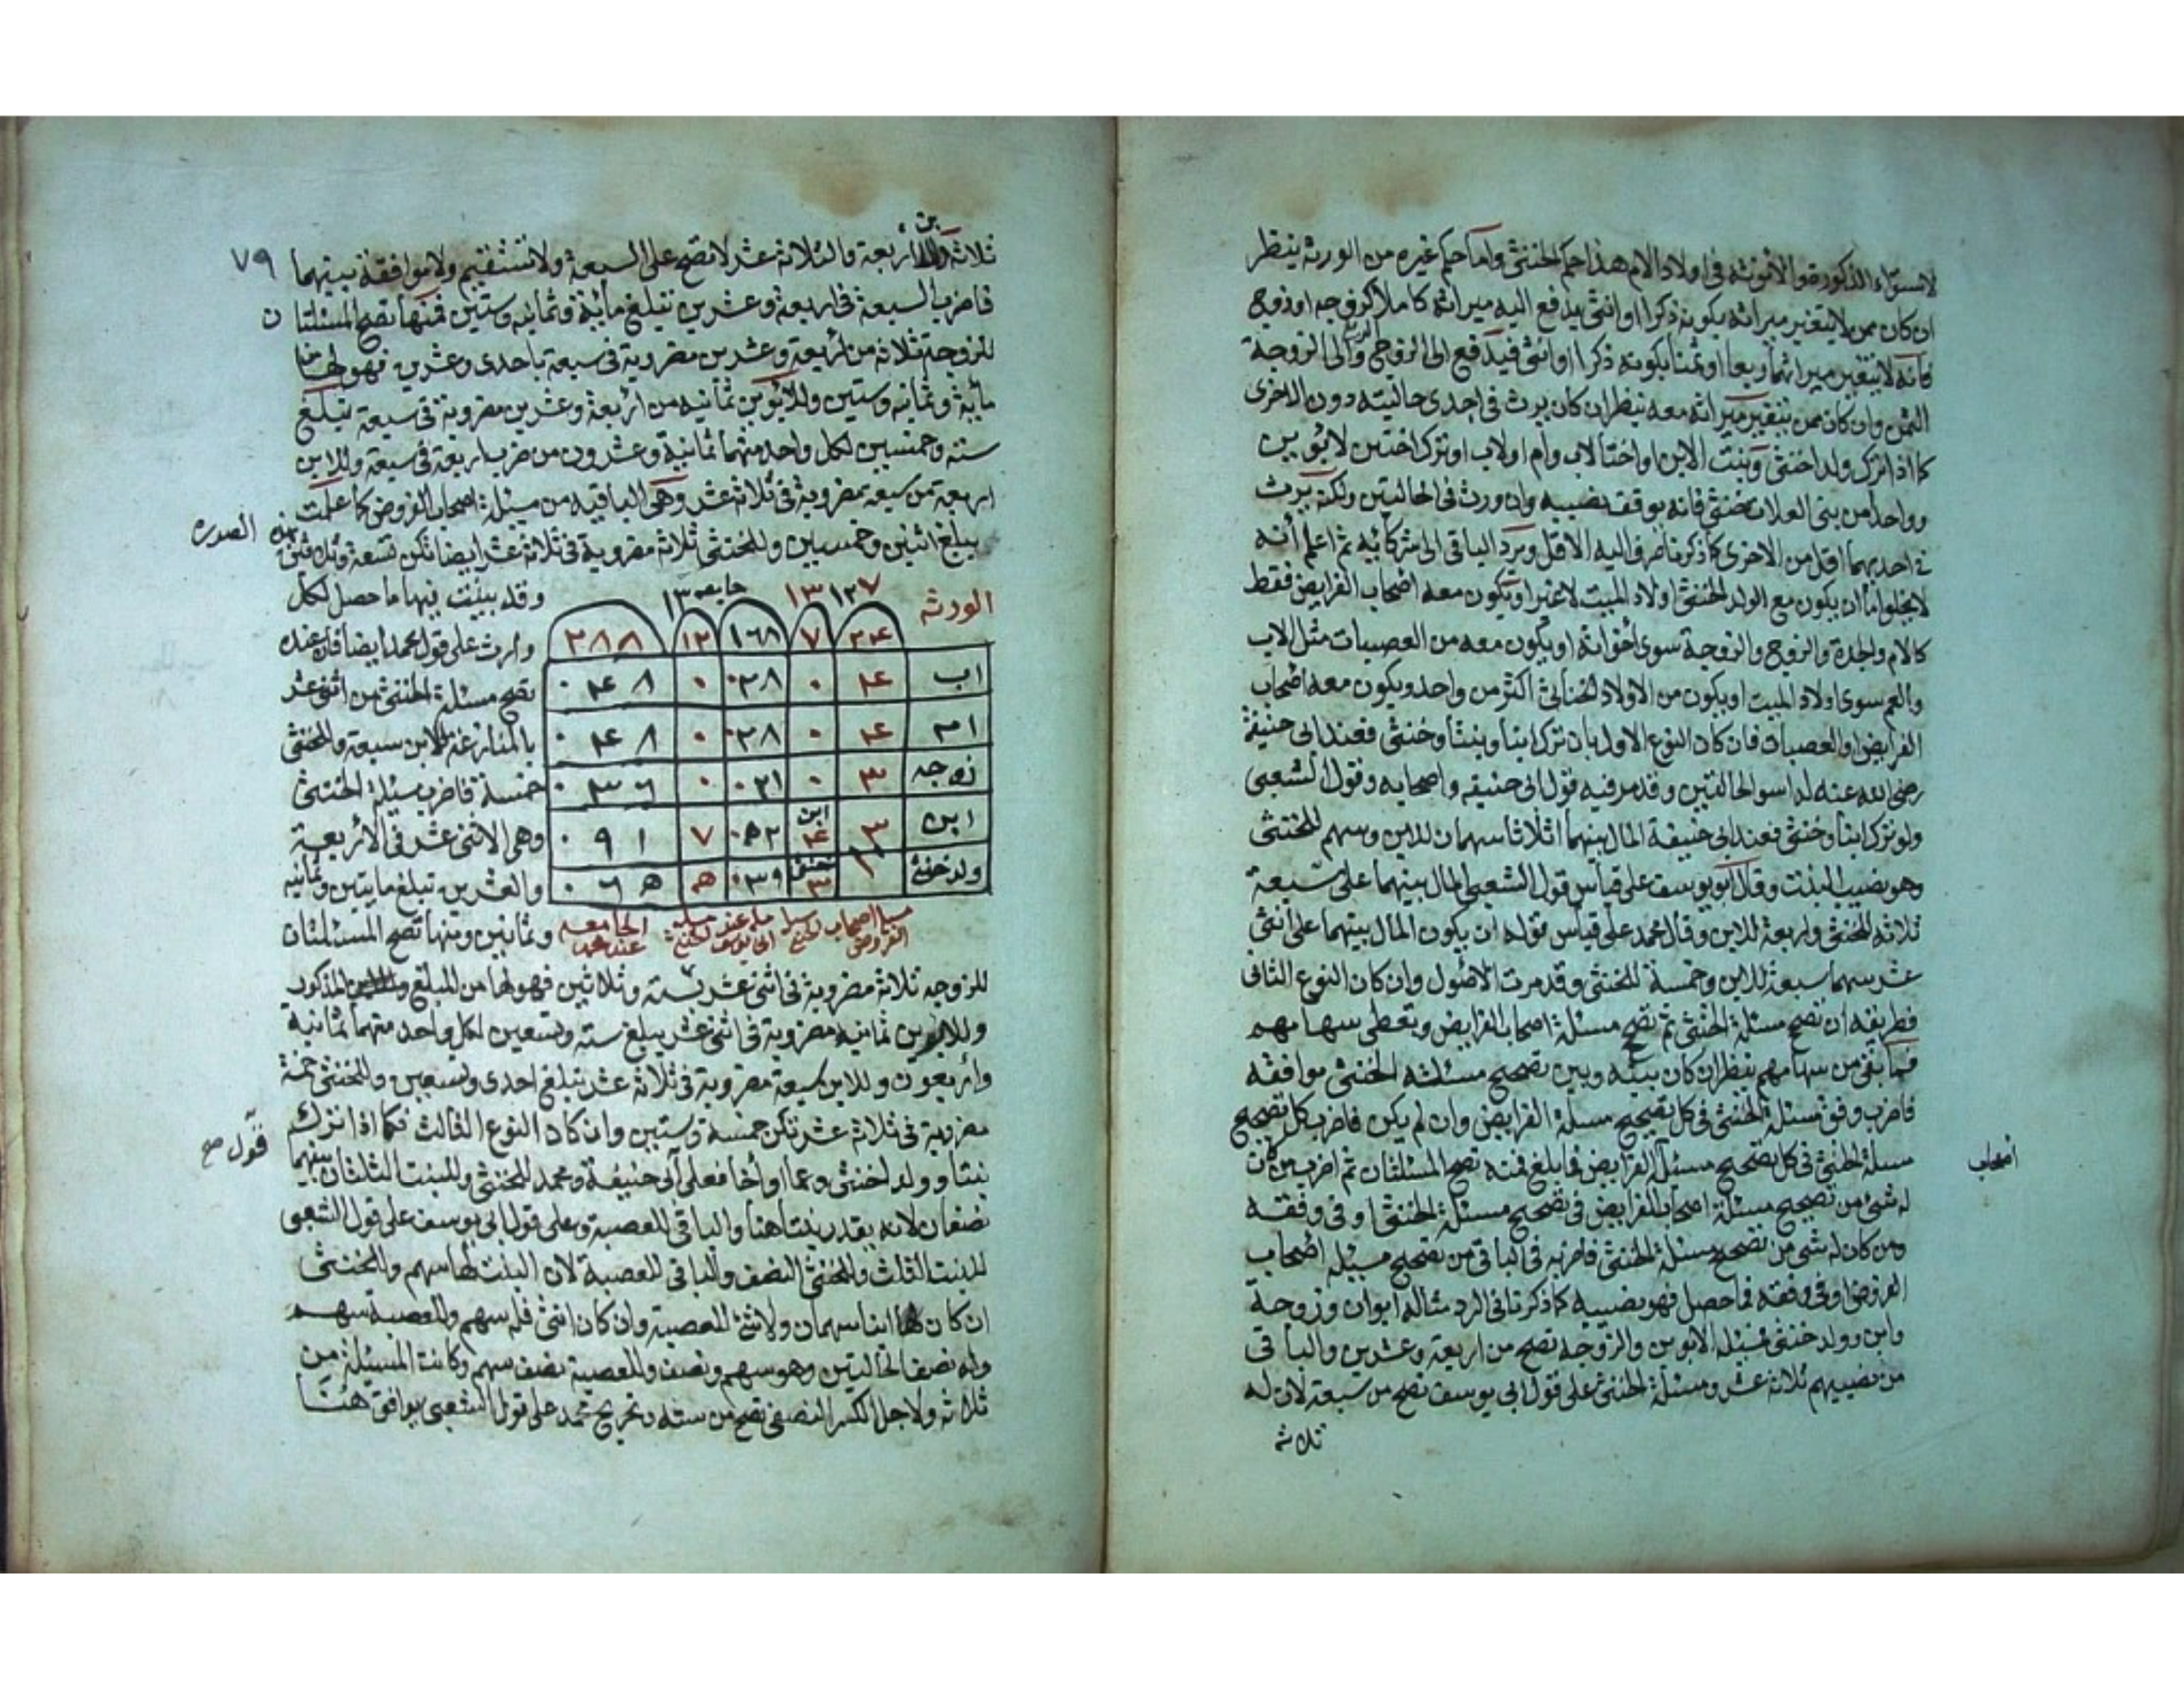 لاستواء الذكورة والانوثة فى اولاد الام هذا حكم الخنثى واما حكم غيره من الورثة ينظر
ان كان ممن لا يتغير ميراثه بكونه ذكرا او انثى يدفع اليه ميراثه كاملا كزوجه او زوج
فانه لا يتغير ميراثهما ربعا او ثمنا بكونه ذكرا او انثى فيدفع الى الزوج الربع والى الزوجة
الثمن وان كان ممن يتغير ميراثه معه ينظر ان كان يرث فى احدى حاليته دون الاخرى
كما اذا ترك ولدا خنثى وبنت الابن او اختا لاب وام او لاب او ترك اختين لابوين
وواحدا من بنى العلات خنثى فانه يوقف نصيبه وان ورث فى الحاليتين ولكنه يرث
فى احديهما اقل من الاخرى كما ذكرنا صرف اليه الاقل ويرد الباقى الى شركائه ثم اعلم أنه
لا يخلوا اما أن يكون مع الولد الخنثى اولاد الميت لا غير او يكون معه اصحاب الفرايض فقط
كالام والجدة والزوج والزوجة سوى اخوانه او يكون معه من العصبات مثل الاب
والعم سوى اولاد الميت او يكون من الاولاد الخناثى اكثر من واحد ويكون معه اصحاب
الفرايض والعصبات فان كان النوع الاول بان ترك ابنا وبنتا وخنثى فعند ابى حنيفة
رضى الله عنه له اسوا الحالتين وقد مر فيه قول ابى حنيفه واصحابه وقول الشعبى
ولو ترك ابنا وخنثى فعند ابى حنيفة المال بينهما اثلاثا سهمان للابن وسهم للخنثى
وهو نصيب البنت وقال ابو يوسف على قياس قول الشعبى المال بينهما على سبعة
ثلاثه للخنثى واربعة للابن وقال محمد على قياس قوله ان يكون المال بينهما على اثنى
عشر سهما سبعة للابن وخمسة للخنثى وقد مرت الاصول وان كان النوع الثانى
فطريقه ان تصح مسئلة الخنثى ثم تصح مسئلة اصحاب الفرايض وتعطى سهامهم
فما بقى من سهامهم ينظر ان كان بينه وبين تصحيح مسئلته الخنثى موافقه
فاضرب وفق مسئلة الخنثى فى كل تصحيح مسئلة الفرايض وان لم يكن فاضرب كل تصحيح
مسئلة الخنثى فى كل تصحيح مسئلة الفرايض فما بلغ فمنه تصح المسئلتان ثم اضرب من كان
اصحاب
له شئ من تصحيح مسئلة اصحاب الفرايض فى تصحيح مسئلة الخنثى او فى وفقه
ومن كان له شى من تصحيح مسئلة الخنثى فاضربه فى الباقى من تصحيح مسئلة اصحاب
الفروض او فى وفقه فما حصل فهو نصيبه كما ذكرنا فى الرد مثاله ابوان وزوجة
وابن وولد خنثى فمسئلة الابوين والزوجه تصح من اربعة وعشرين والباقى
من نصيبهم ثلاثة عشر ومسئلة الخنثى على قول ابى يوسف تصح من سبعة لان له
ثلاثه
٧٩
بن
ثلاثة اربعة والثلاثة عشر لا تصح على السبعة ولا تستقيم ولا موافقة بينهما
فاضرب السبعة فى اربعة وعشرين تبلغ مائة وثمانيه وستين فمنها تصح المسئلتا ن
للزوجة ثلاثة من اربعة وعشرين مضروبة فى سبعة باحدى وعشرين فهو لها من
مائة وثمانيه وستين وللابوين ثمانيه من اربعة وعشرين مضروبة فى سبعة يبلغ
سته وخمسين لكل واحد منهما ثمانية وعشرون من ضرب اربعة فى سبعة وللابن
اربعة من سبعة مضروبة فى ثلاثة عشر وهى الباقيه من مسئلة اصحاب الفروض كما علمت
يبلغ اثنين وخمسين وللخنثى ثلاثة مضروبة فى ثلاثة عشر ايضا تكن تسعة وثلاثين
هذه الصوره
وقد بينت فيها ما حصل لكل
وارث على قول محمد ايضا فان عنده
تصح مسئلة الخنثى من اثنى عشر
بالمنازعة للابن سبعة وللخنثى
خمسة فاضرب مسئلة الخنثى
وهى الاثنى عشر فى الأربعة
والعشرين تبلغ مايتين وثمانيه
وثمانين ومنها تصح المسئلتان
الورثه ١٢٧ ١٣ جامعه ١٣
٢٤ ٧ ١٦٨ ١٢ ٢٨٨
اب ٤ ٠ ٠٢٨ ٠ ٠٤٨
ام ٤ ٠ ٠٢٨ ٠ ٠٤٨
زوجه ٣ ٠ ٠٢١ ٠ ٠٣٦
ابن ١٣ ابن ٤ ٠٥٢ ٧ ٠٩١
ولد خنثى خنثى ٣ ٠٣٩ ٥ ٠٦٥
الجامعه
عند محمد
للزوجه ثلاثة مضروبة فى اثنى عشر بسته وثلاثين فهو لها من المبلغ المذكور
وللابوين ثمانيه مضروبة فى اثنى عشر يبلغ سته وتسعين لكل واحد منهما ثمانية
وأربعون وللابن سبعة مضروبة فى ثلاثة عشر تبلغ احدى وتسعين وللخنثى خمسة
مضروبة فى ثلاثة عشر تكن خمسة وستين وان كان النوع الثالث فكما اذا ترك
بنتا وولد خنثى وعما او أخا فعلى ابى حنيفة ومحمد للخنثى وللبنت الثلثان بينهما
قول صح
نصفان لانه يقدر بنتا هنا والباقى للعصبة وعلى قول ابى يوسف على قول الشعبى
للبنت الثلث وللخنثى النصف والباقى للعصبة لان البنت لها سهم وللخنثى
ان كان ابنا سهمان ولا شئ للعصبة وان كان انثى فله سهم وللعصبة سهم
وله نصف الحاليتين وهو سهم ونصف وللعصبة نصف سهم وكانت المسئلة من
ثلاثه ولاجل الكسر النصفى تصح من سته وتخريج محمد على قول الشعبى يوافق هنا